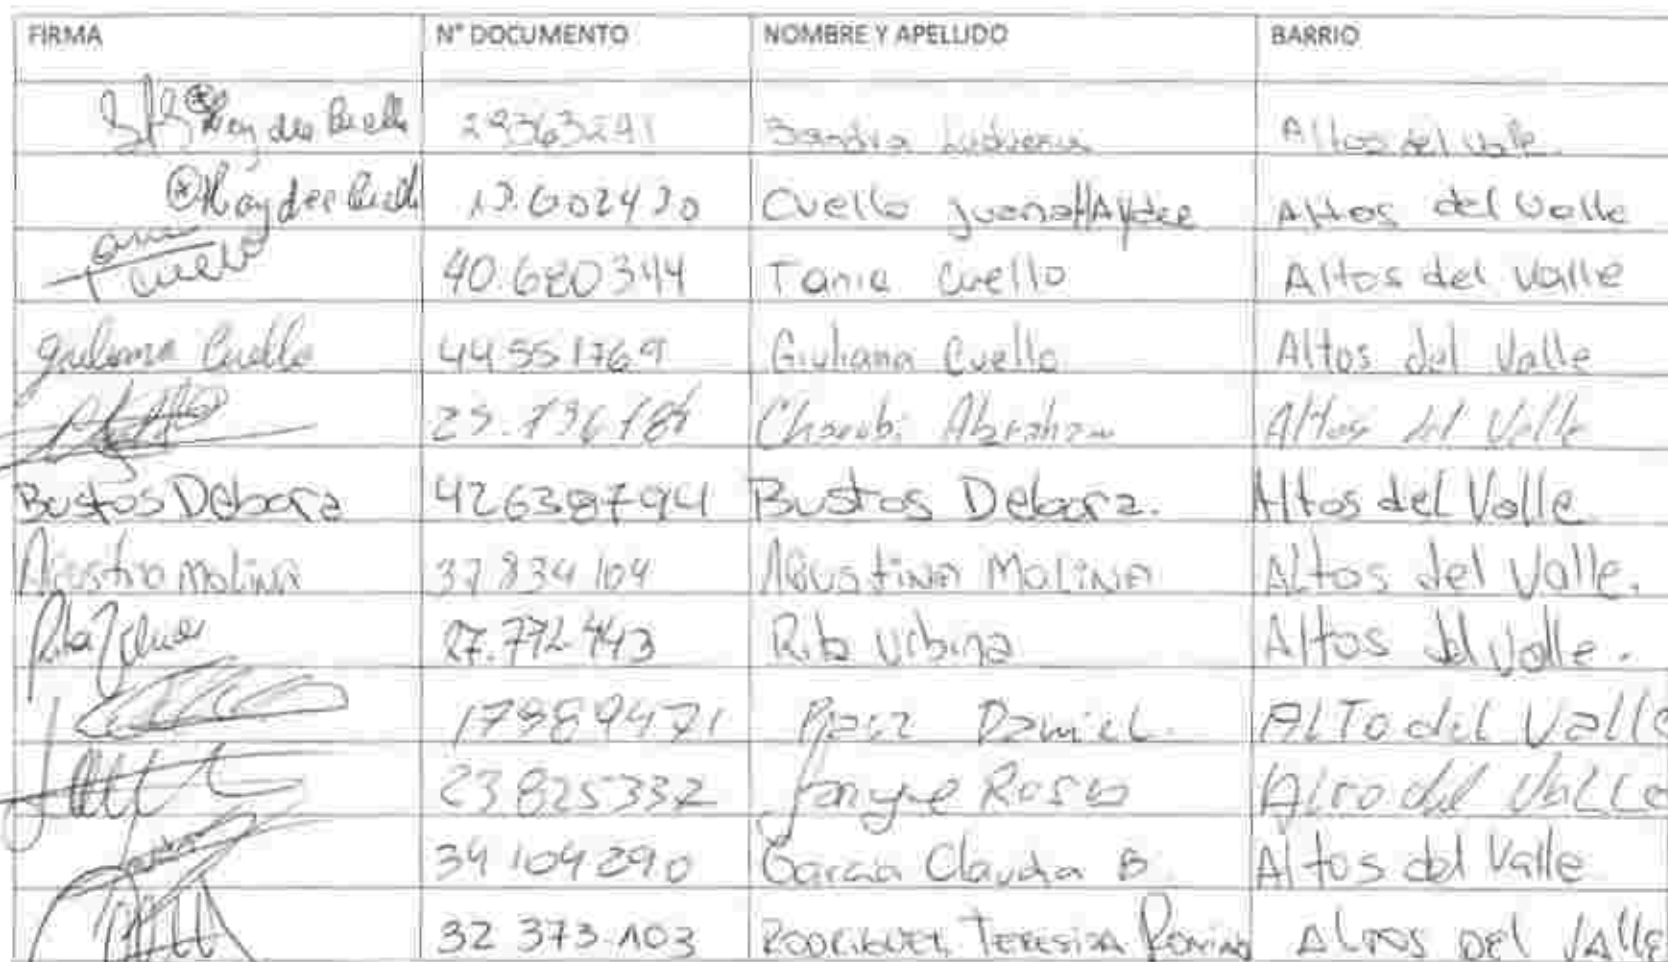 FIRMA N° DOCUMENTO NOMBRE Y APELLIDO BARRIO
29363241 Sandra Ludueña Altos del Valle.
Haydee Cuello 13.602430 Cuello Juana Haydee Altos del Valle
Tania Cuello 40.680344 Tania Cuello Altos del Valle
Giuliana Cuello 44551769 Giuliana Cuello Altos del Valle
Abraham Altos del Valle
Bustos Debora 42638794 Bustos Debora. Altos del Valle.
Agustina Molina 37834104 Agustina Molina Altos del Valle.
Rita 27.772.443 Rita Urbina Altos del Valle.
17989471 Daniel. ALTo del Valle
23825332 Alto del Valle
34104290 Garcia Claudia B. Altos del Valle
32 373.103 RODRIGUEZ TERESITA Romina Altos DEL VALLE